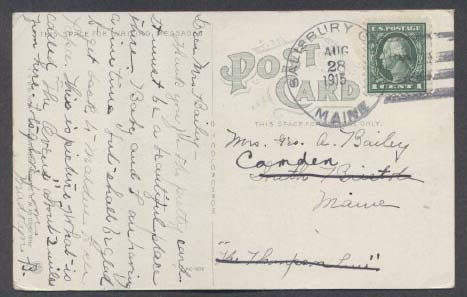 THIS SPACE FOR WRITING MESSAGES
POST
CARD
THIS SPACE FOR ADDRESS ONLY.
SALISBURY
AUG
28
1915
MAINE
U.S. POSTAGE
1 CENT 1
Mrs. Geo. A. Bailey
Camden
South Bristol
Maine
"The Thompson Inn"
Dear Mrs. Bailey
Thank you for the pretty card.
It must be a beautiful place
there. Baby and I are having
a fine time but shall be glad
to get back to Malden.
This is picture of what is
called the Ovens about 2 miles
from here.